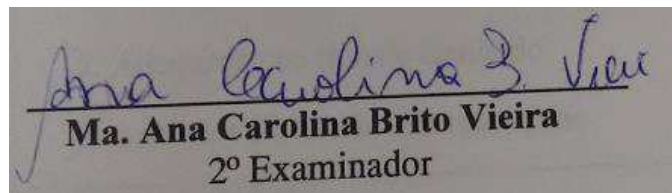 Ana Carolina B. Viei
Ma. Ana Carolina Brito Vieira
2º Examinador